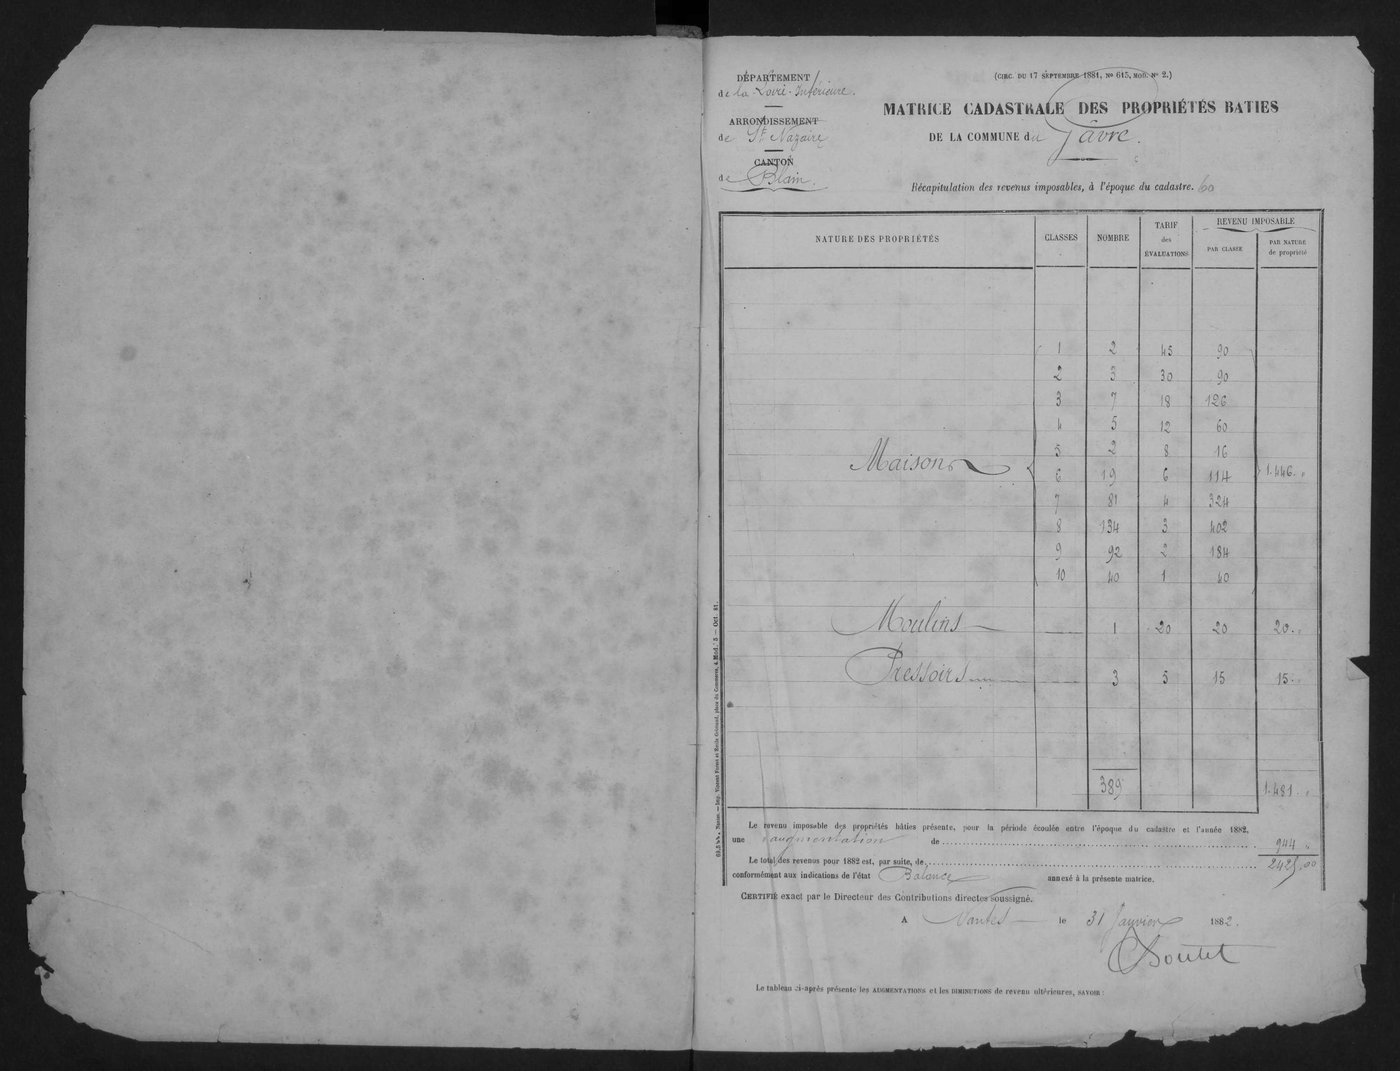 DÉPARTEMENT
de la Loire-Inférieure.
ARRONDISSEMENT
de St Nazaire
CANTON
de Blain.
(CIRC. DU 17 SEPTEMBRE 1881, No 615, MOD. No 2.)
MATRICE CADASTRALE DES PROPRIÉTÉS BATIES
DE LA COMMUNE du Gâvre.
Récapitulation des revenus imposables, à l'époque du cadastre. 60
NATURE DES PROPRIÉTÉS CLASSES NOMBRE TARIF des ÉVALUATIONS REVENU IMPOSABLE
PAR CLASSE PAR NATURE de propriété
1 2 45 90
2 3 30 90
3 7 18 126
4 5 12 60
5 2 8 16
Maisons 6 19 6 114 1.446. "
7 81 4 324
8 134 3 402
9 92 2 184
10 40 1 40
Moulins 1 20 20 20. "
Pressoirs 3 5 15 15. "
389 1.481. "
Le revenu imposable des propriétés bâties présente, pour la période écoulée entre l'époque du cadastre et l'année 1882,
une augmentation de 944 "
Le total des revenus pour 1882 est, par suite, de 2425.00
conformément aux indications de l'état Balance annexé à la présente matrice.
CERTIFIÉ exact par le Directeur des Contributions directes soussigné.
A Nantes le 31 Janvier 1882.
Le tableau ci-après présente les AUGMENTATIONS et les DIMINUTIONS de revenu ultérieures, SAVOIR :